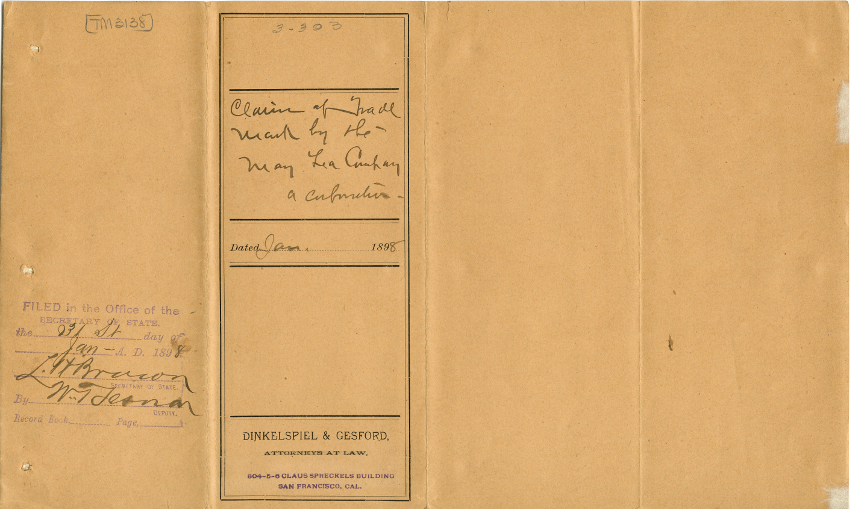 TM3138
3-303
Claim of Trade
Mark by the
May Tea Company
a corporation
Dated Jan. 1898
FILED in the Office of the
SECRETARY OF STATE.
the 31st day of
Jan A. D. 1898
L. H. Brown
SECRETARY OF STATE.
By W. T.
DEPUTY.
Record Book Page
DINKELSPIEL & GESFORD,
ATTORNEYS AT LAW,
804-5-6 CLAUS SPRECKELS BUILDING
SAN FRANCISCO, CAL.